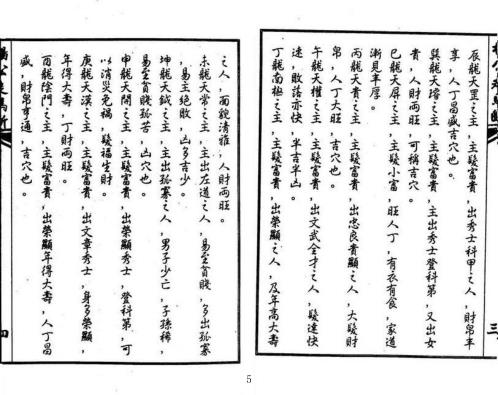 辰龍天罡之主,主發富貴,出秀士科甲之人,財帛丰
享,人丁昌盛吉穴也。
巽龍天璿之主,主發富貴,主出秀士登科第,又出女
貴,人財兩旺,可稱吉穴。
巳龍天屏之主,主發小富,旺人丁,有衣有食,家道
漸見丰厚。
丙龍天貴之主,主發富貴,出忠良貴顯之人,大發財
帛,人丁大旺,吉穴也。
午龍天權之主,主發富貴,出文武全才之人,發達快
速,敗落亦快,半吉半凶。
丁龍南極之主,主發富貴,出榮顯之人,及年高大壽
三
之人,面貌清雅,人財兩旺。
未龍天常之主,主出左道之人,易至貧賤,多出孤寡
,易主絕敗,凶多吉少。
坤龍天鉞之主,主出孤寡之人,男子少亡,子孫稀,
易至貧賤孤苦,凶穴也。
申龍天關之主,主發富貴,出榮顯秀士,登科第,可
以消災免禍,發福生財。
庚龍天漢之主,主發富貴,出文章秀士,身多榮顯,
年得大壽,丁財兩旺。
酉龍陰門之主,主發富貴,出榮顯年得大壽,人丁昌
盛,財帛亨通,吉穴也。
四
5